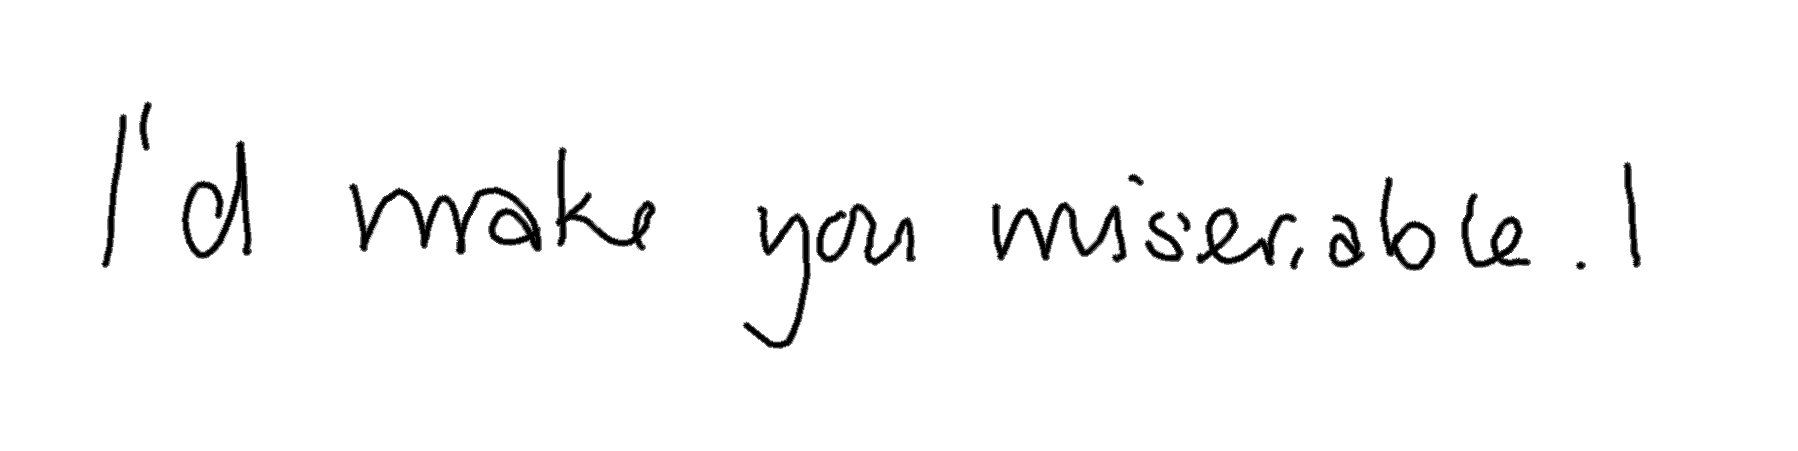 I'd make you miserable. I